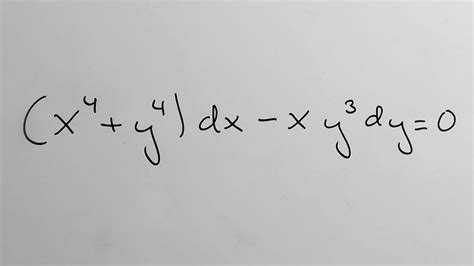 (x⁴+y⁴)dx-xy³dy=0